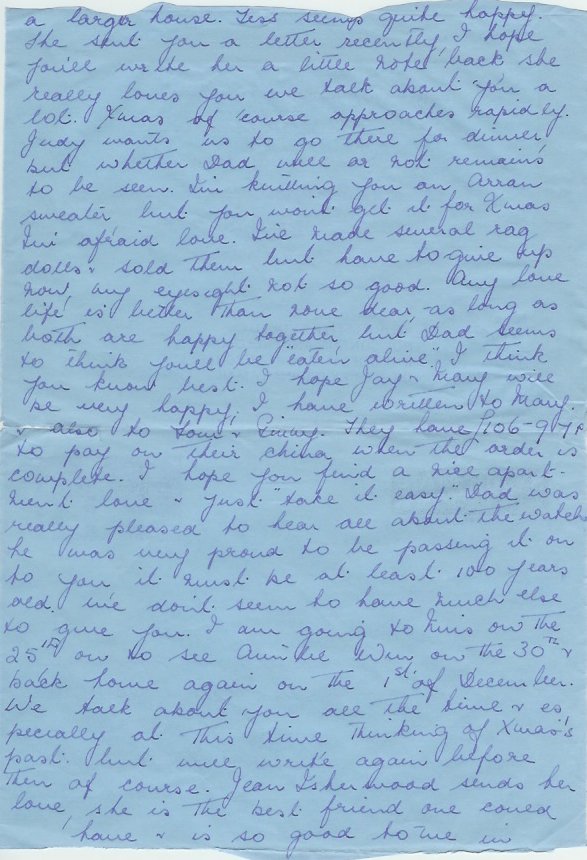 a larger house. Tess seems quite happy.
She sent you a letter recently, I hope
you'll write her a little note back she
really loves you we talk about you a
lot. Xmas of course approaches rapidly.
Judy wants us to go there for dinner,
but whether Dad will or not remains
to be seen. I'm knitting you an Arran
sweater but you won't get it for Xmas
I'm afraid love. I've made several rag
dolls & sold them but have to give up
now, my eyesight not so good. Any love
life is better than none dear, as long as
both are happy together, but Dad seems
to think you'll be "eaten alive". I think
you know best. I hope Jay & Mary will
be very happy, I have written to Mary.
& also to Tom & Ginny. They have £106-97p
to pay on their china when the order is
complete. I hope you find a nice apart-
ment love & just "take it easy". Dad was
really pleased to hear all about the watch
he was very proud to be passing it on
to you it must be at least 100 years
old. We don't seem to have much else
to give you. I am going to on the
25th on to see Auntie Win on the 30th &
back home again on the 1st of December.
We talk about you all the time & es,
pecially at this time thinking of Xmas's
past. but will write again before
then of course. Jean Isherwood sends her
love, she is the best friend one could
have & is so good to me in